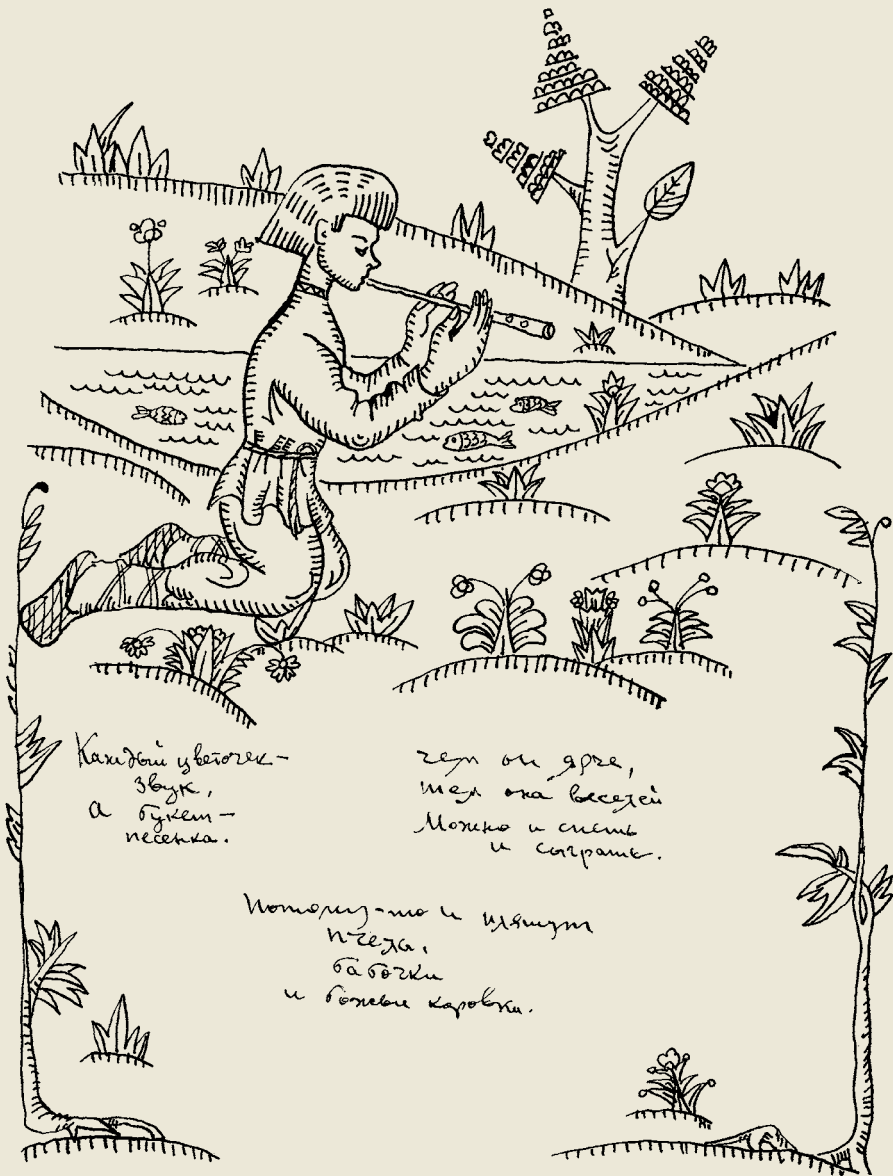 Каждый цветочек –
звук,
а букет –
песенка.
чем он ярче,
тем она веселей
Можно и спеть
и сыграть.
Потому-то и пляшут
пчелы,
бабочки
и божьи коровки.